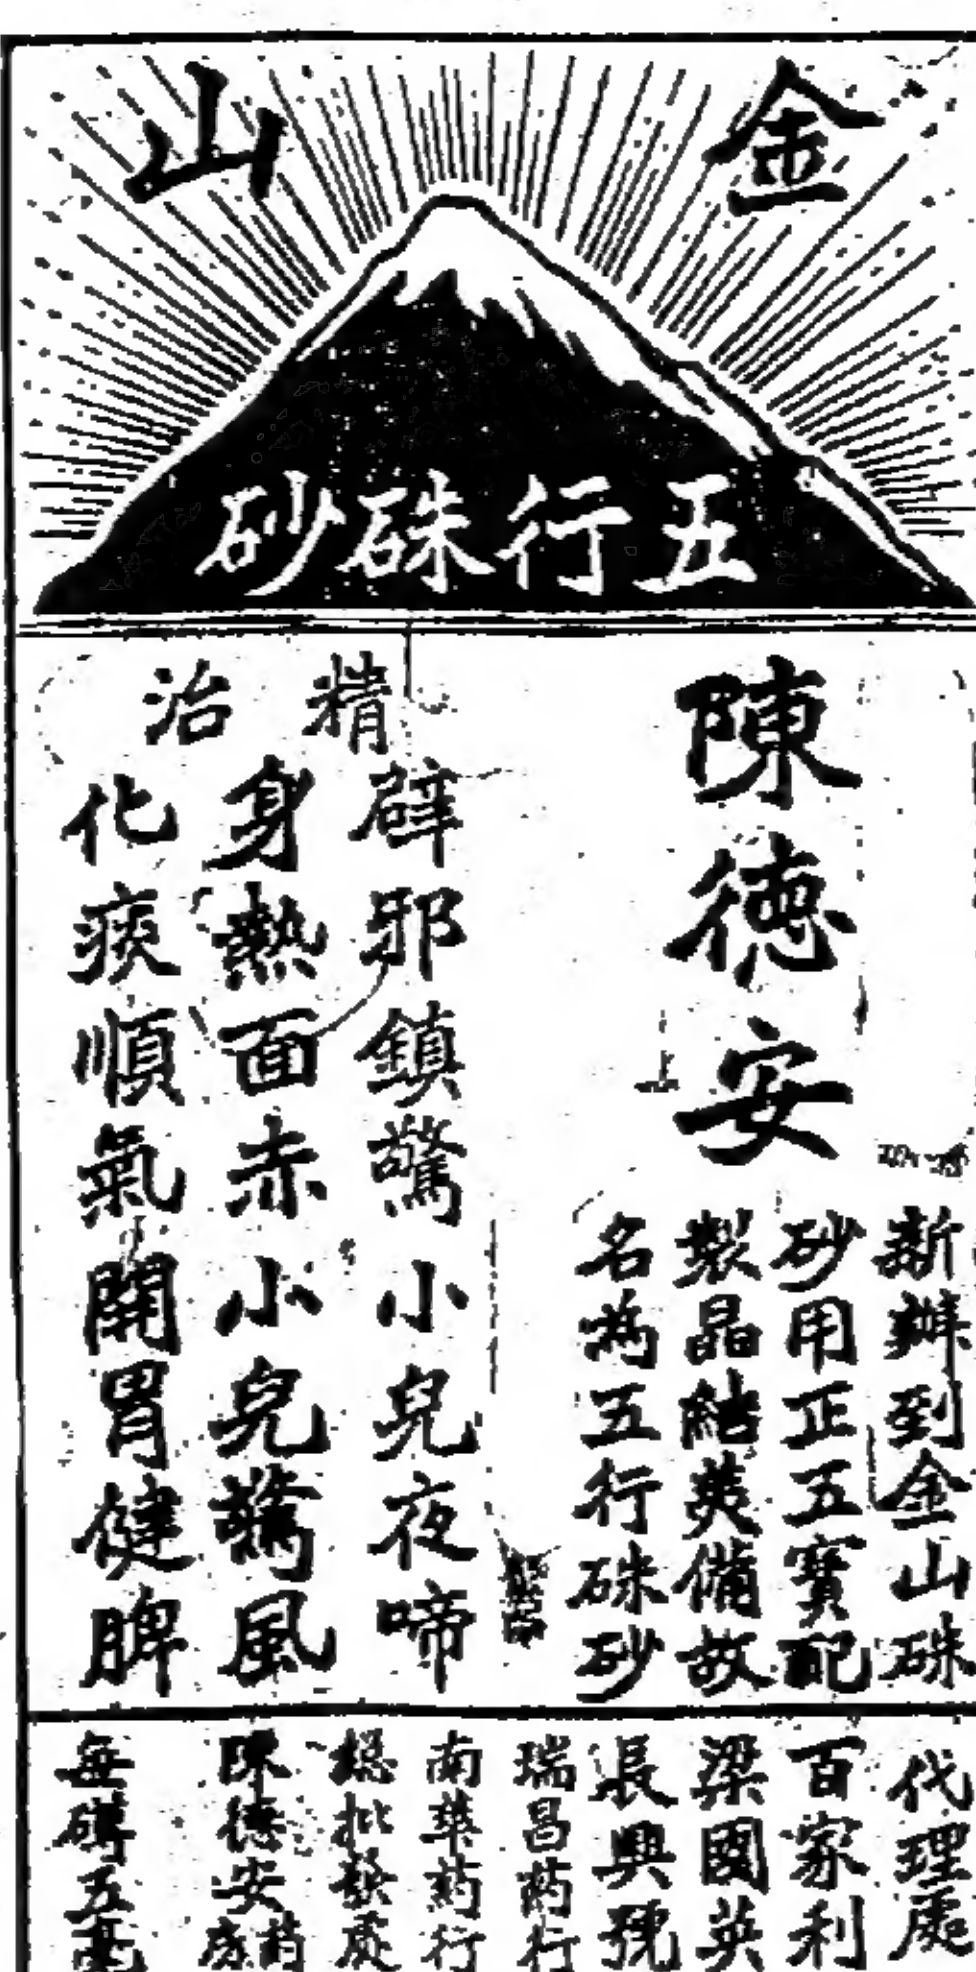 金山
五行硃砂
陳德安
新辦到金山硃
砂用正五寶配
製晶結美備故
名為五行硃砂
精治
辟邪鎮驚小兒夜啼
身熱面赤小兒驚風
化痰順氣開胃健脾
代理處
百家利
梁國英
長興號
瑞昌葯行
南華葯行
總批發處
陳德安
每磚五毫